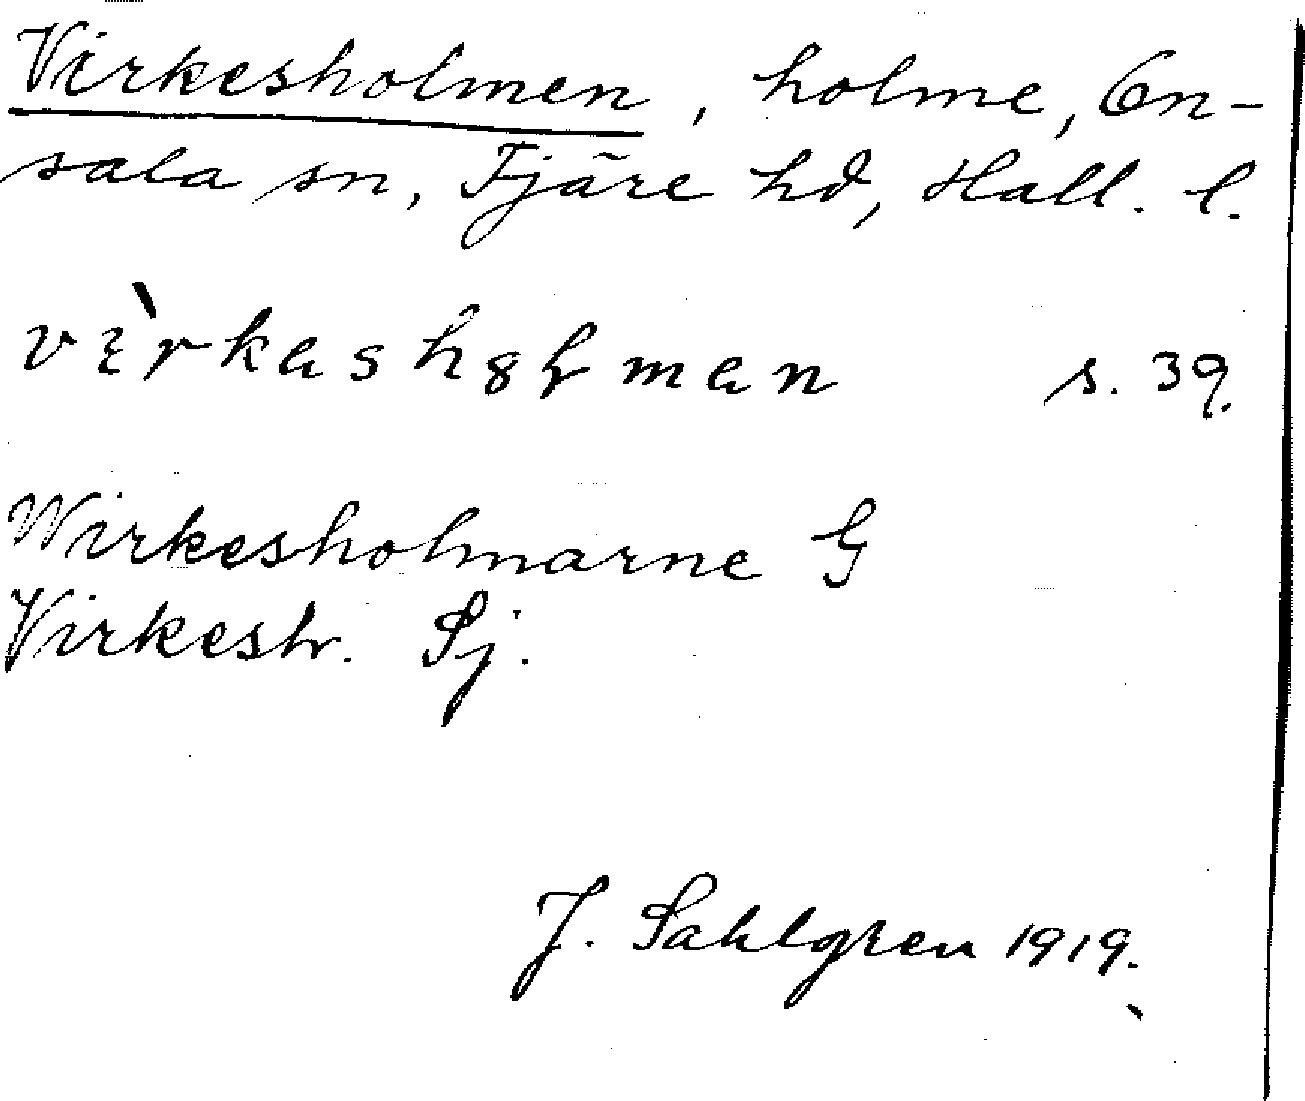 Virkesholmen, holme, On-
sala sn, Fjäre hd, Hall. l.
s. 39.
Wirkesholmarne G
Virkesh. Sj.
J. Sahlgren 1919.